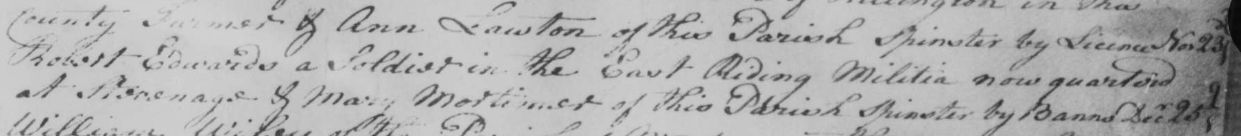 in tha
County Farmer & Ann Lawton of this Parish Spinster by Licence Nov 23d
Robert Edwards a Soldier in the East Riding Militia now quarterd
at Stevenage & Mary Mortimer of this Parish Spinster by Banns Decr 25
William of the Parish